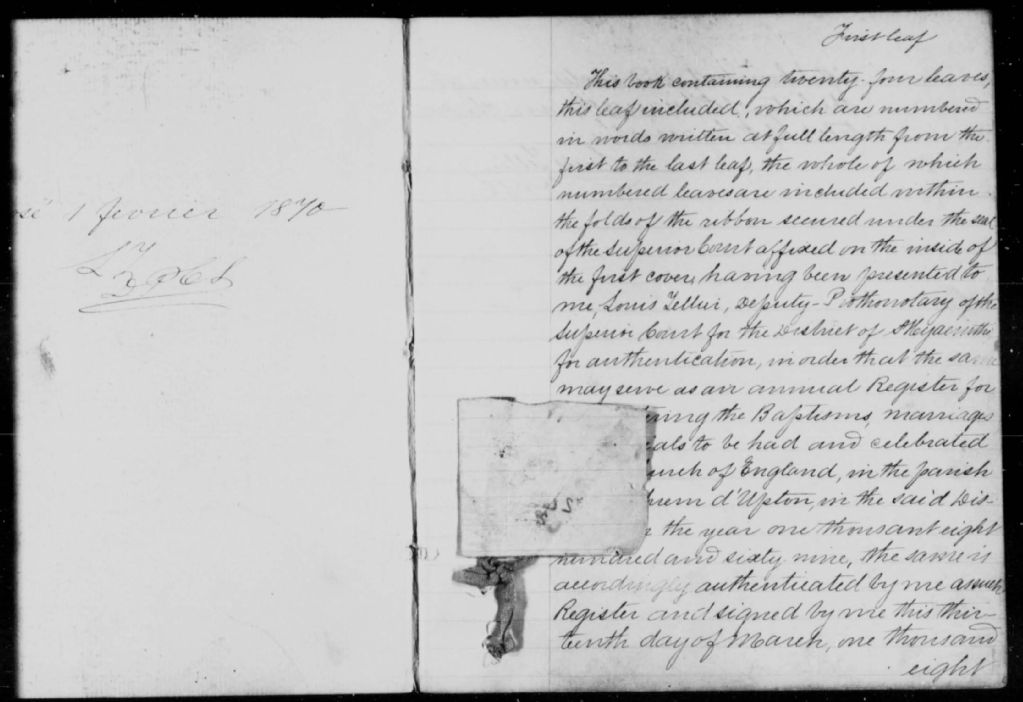 1 fevrier 1870
First leaf
This book containing twenty-four leaves,
this leaf included, which are numbered
in words written at full length from the
first to the last leaf, the whole of which
numbered leaves are included within
the folds of the ribbon secured under the seal
of the Superior Court affixed on the inside of
the first cover, having been presented to
me, Louis Tellier, Deputy-Prothonotary of the
Superior Court for the District of St Hyacinthe
for authentication, in order that the same
may serve as an annual Register for
ring the Baptisms, marriages
ials to be had and celebrated
urch of England, in the parish
hrem d'Upton, in the said Dis-
the year one thousand eight
hundred and sixty nine, the same is
accordingly authenticated by me as such
Register and signed by me this thir-
teenth day of March, one thousand
eight